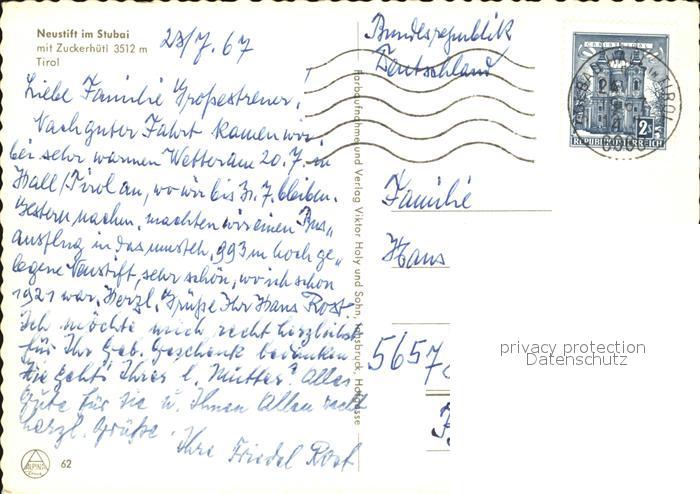 Neustift im Stubai
mit Zuckerhütl 3512 m
Tirol
23/7. 67
Liebe Familie Großestrener!
Nach guter Fahrt kamen wir
bei sehr warmen Wetter am 20. 7. in
Hall/Tirol an, wo wir bis 31. 7. bleiben.
Gestern nachm. machten wir einen Bus„
ausflug in das umsteh. 993 m hoch ge„
legene Neustift, sehr schön, wo ich schon
1921 war. Herzl. Grüße Ihr Hans Rost.
Ich möchte mich recht herzlichst
für Ihr Geb. Geschenk bedanken.
Wie geht's Ihrer l. Mutter? Alles
Gute für sie u. Ihnen Allen recht
herzl. Grüße.
Ihre Friedel Rost
ALPINA
62
Farbaufnahme und Verlag Viktor Holy und Sohn, Innsbruck, Hofgasse
Bundesrepublik
Deutschland
2 S
REPUBLIK ÖSTERREICH
Familie
Hans
5657
privacy protection
Datenschutz